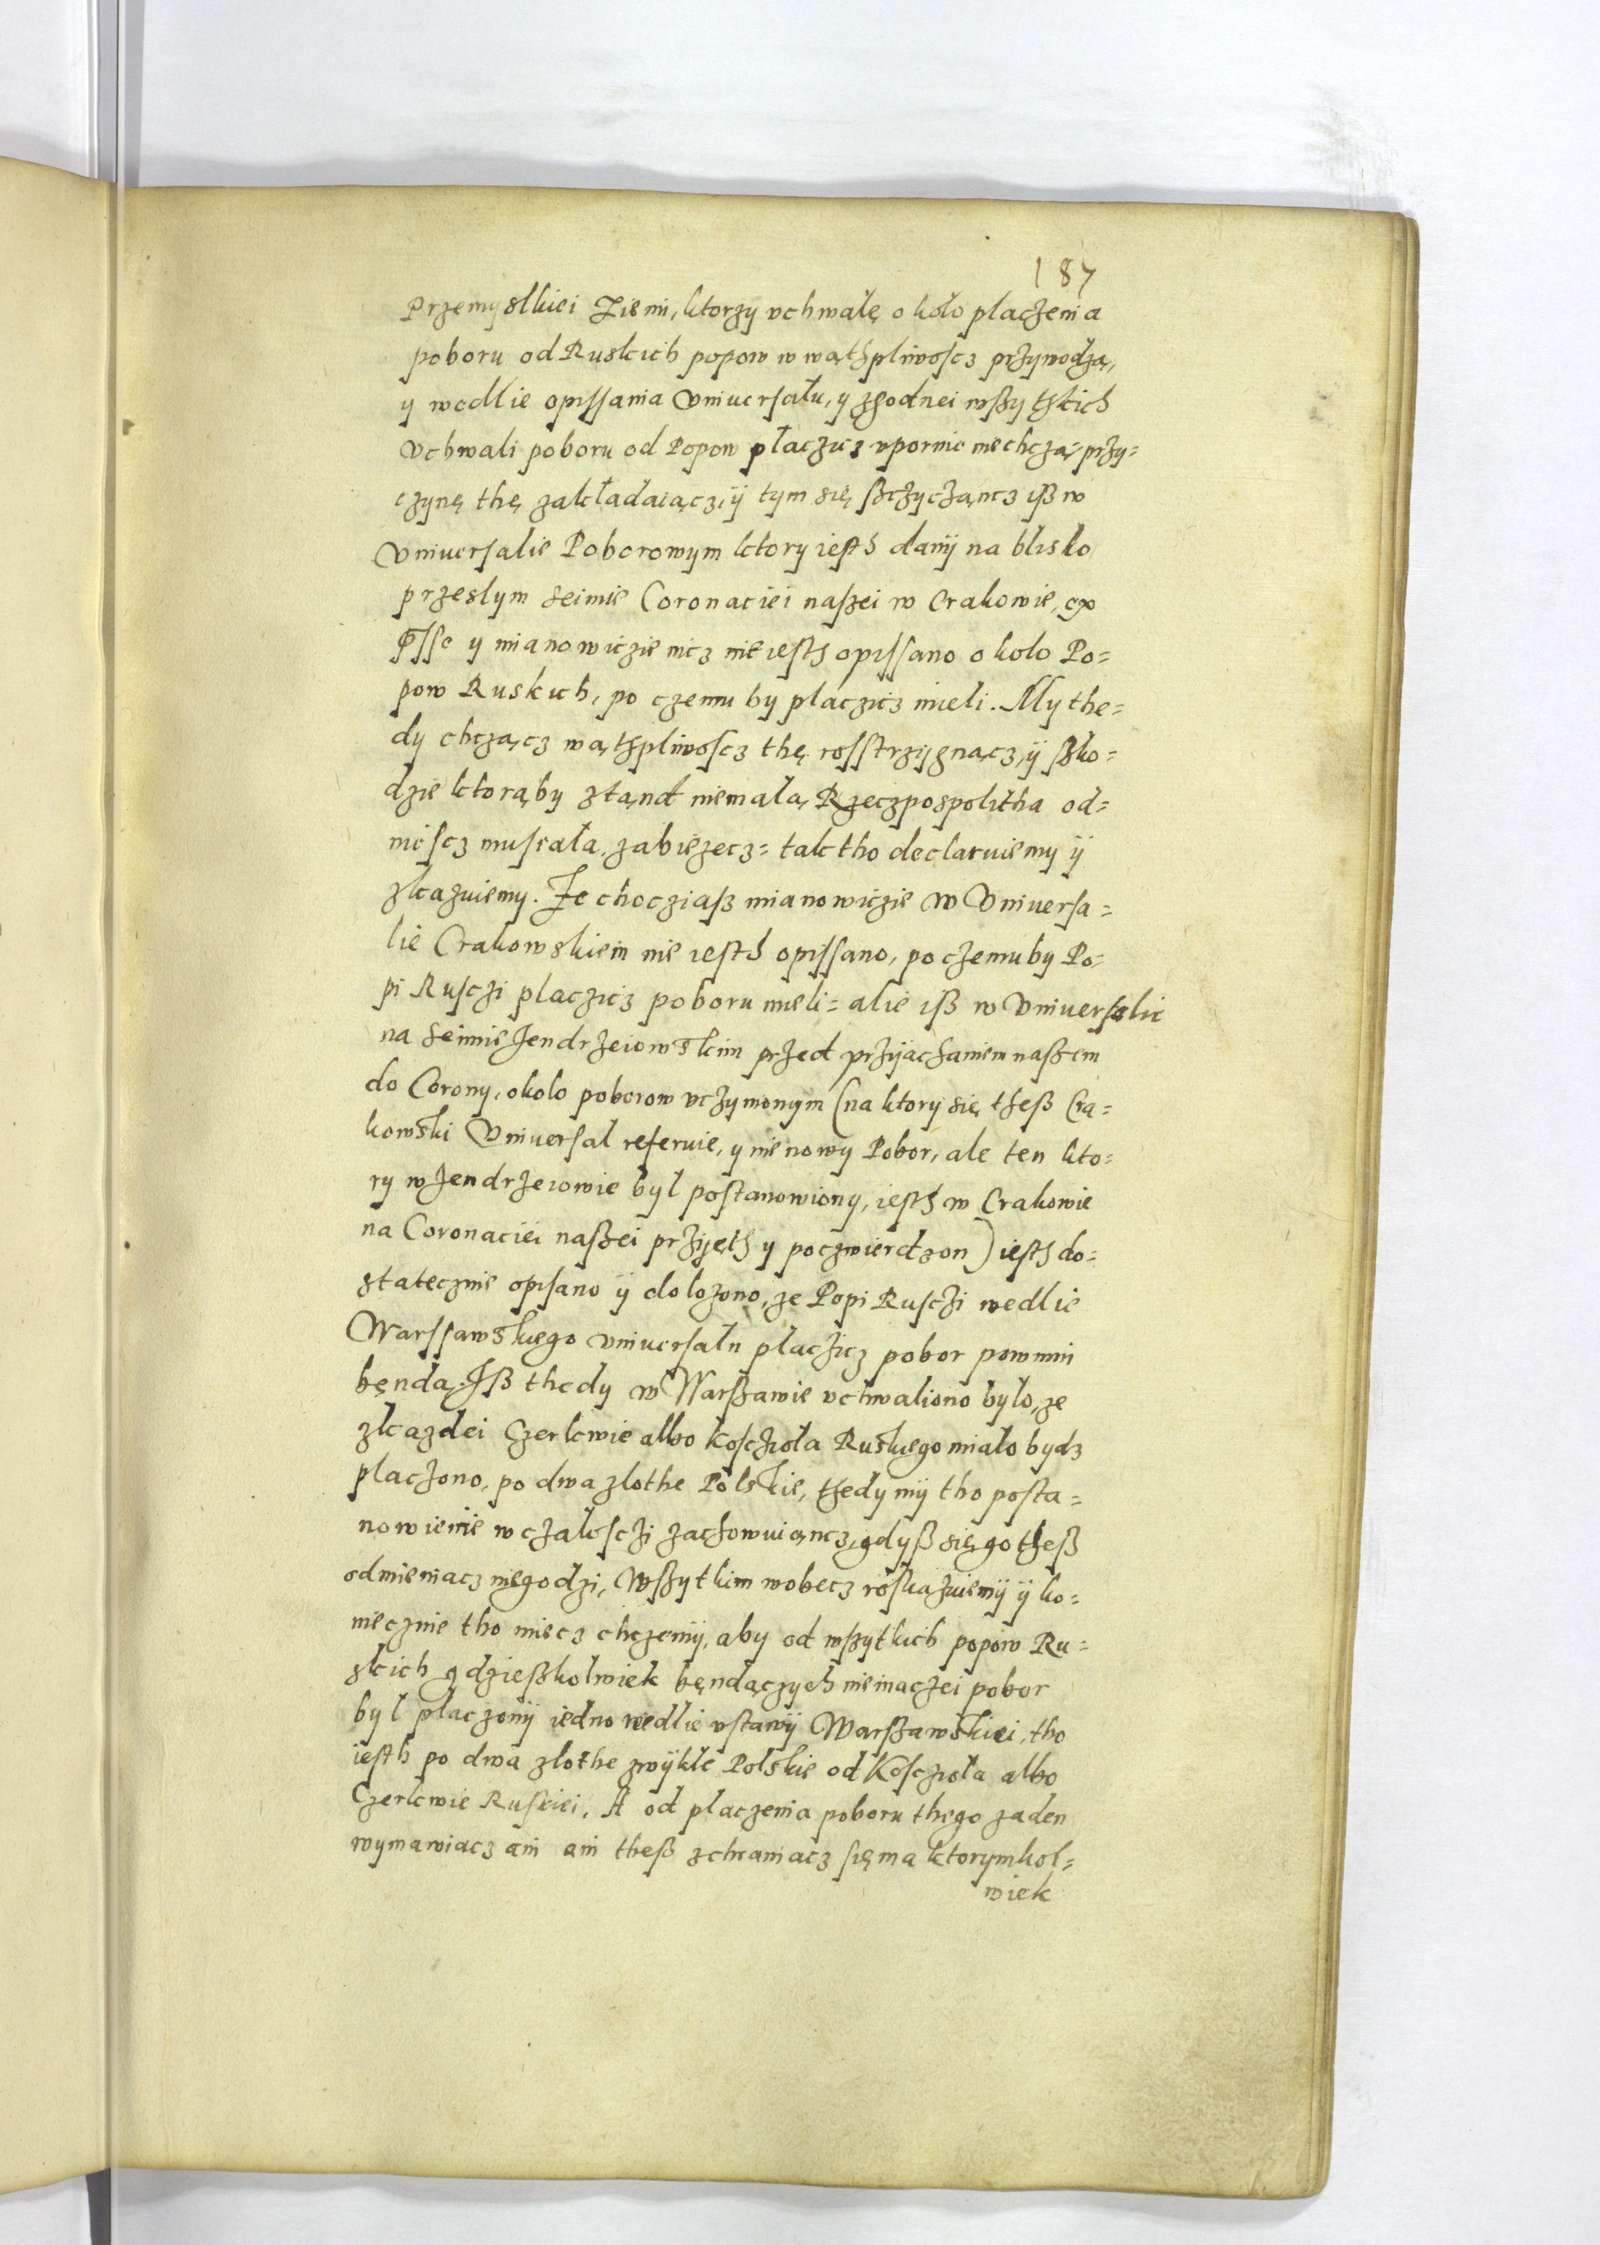 187
Przemyslkiei Ziemi, ktorzy vchwałę około placzenia
poboru od Ruskich popow w wąthpliwoscz przywodzą,
y wedlie opissania Vniuersału, y zgodnei wszytzkich
Vchwali poboru od Popow płaczicz vpornie niechczą, przy=
czynę thę zakładaiącz, ÿ tym się szczyczancz isz w
Vniuersalie Poborowym ktory iesth danÿ na blisko
przeslym seimie Coronaciei naszei w Crakowie, exp
Psse y mianowiczie nicz nie iesth opissano około Po=
pow Ruskich, po czemu by placzicz mieli. My the=
dy chczącz wąthpliwoscz thę rosstrzygnącz, ÿ szko=
dzie ktorąby stąnd niemałą Rzeczpospolitha od=
niescz musiała, zabieżecz= tak tho declaruiemy ÿ
zkazuiemy. Ze chocziasz mianowiczie w Vniuersa=
lie Crakowskiem nie iesth opissano, po czemu by Po=
pi Ruschi placzicz poboru mieli= alie isz w Vniuersalie
na seimie Jendrzeiowskim przed przyiachaniem naszem
do Corony, okolo poborow vczynionym (na ktory się thesz Cra=
kowski Vniuersal referuie, y nie nowy Pobor, ale ten kto=
ry w Jendrzeiowie byl postanowiony, iesth w Crakowie
na Coronaciei naszei przyięth y poczwierdzon) iesth do=
statecznie opisano ÿ dolozono, ze Popi Ruschi wedlie
Warssawskiego vniuersału placzicz pobor powinni
bęndą. Isz thedy w Warszawie vchwaliono bylo, ze
z kazdei Czerkwie albo Kosczioła Ruskiego miało bydz
placzono, po dwa zlothe Polskie, thedy mÿ tho posta=
nowienie w czalosczi zachowuiąncz, gdysz się go thesz
odmieniacz niegodzi, Wszytkim wobecz roskazuiemÿ ÿ ko=
niecznie tho miecz chczemÿ, aby od wszytkich popow Ru=
skich gdzieszkolwiek bęndączych nieinaczei pobor
byl placzonÿ iedno wedlie vstawÿ Warszawskiei, tho
iesth po dwa zlothe zwÿkłe Polskie od Kosczioła albo
Czerkwie Ruskiei. A od placzenia poboru thego zaden
wymawiacz ani ani thesz zchraniacz się ma ktorymkol=
wiek